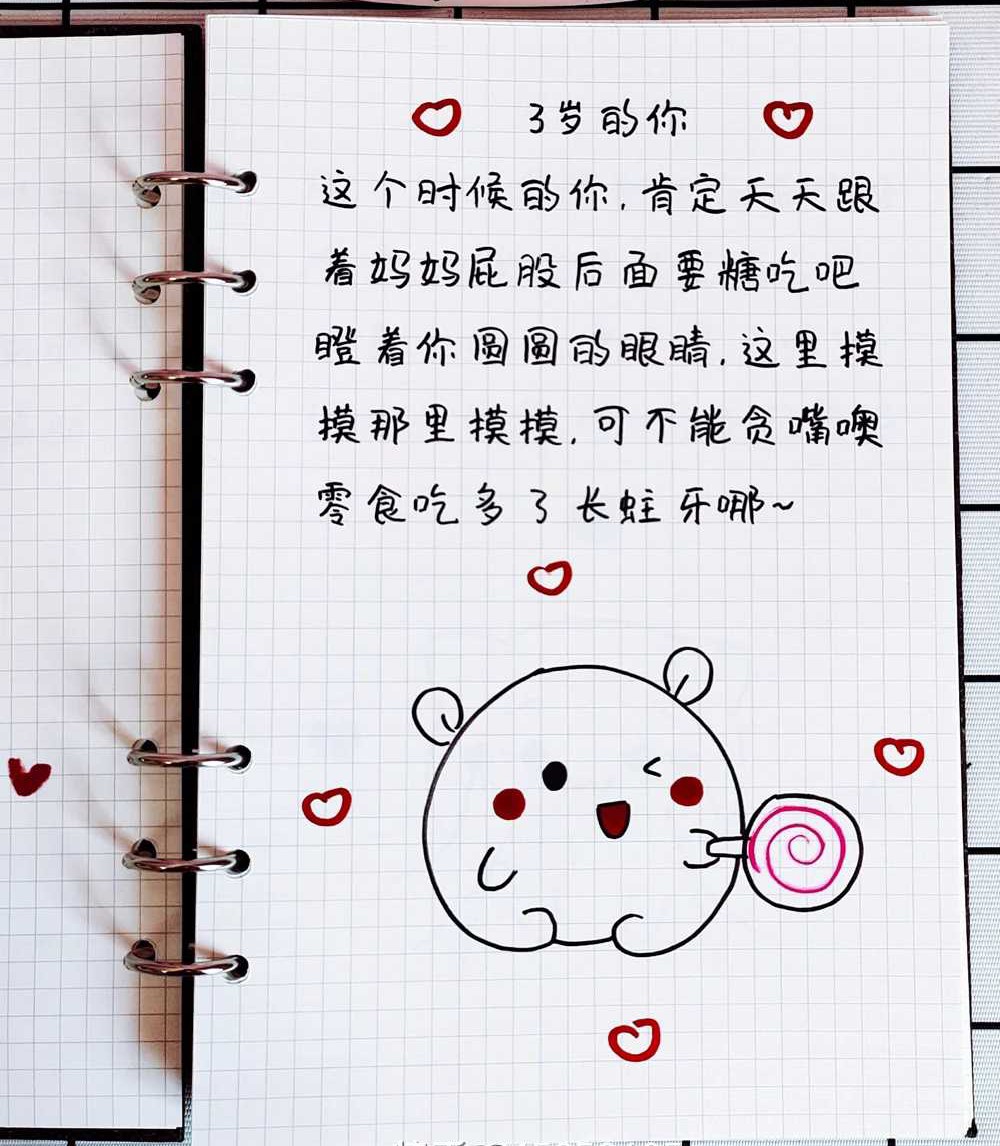 3岁的你
这个时候的你,肯定天天跟
着妈妈屁股后面要糖吃吧
瞪着你圆圆的眼睛,这里摸
摸那里摸摸,可不能贪嘴噢
零食吃多了长蛀牙哪~